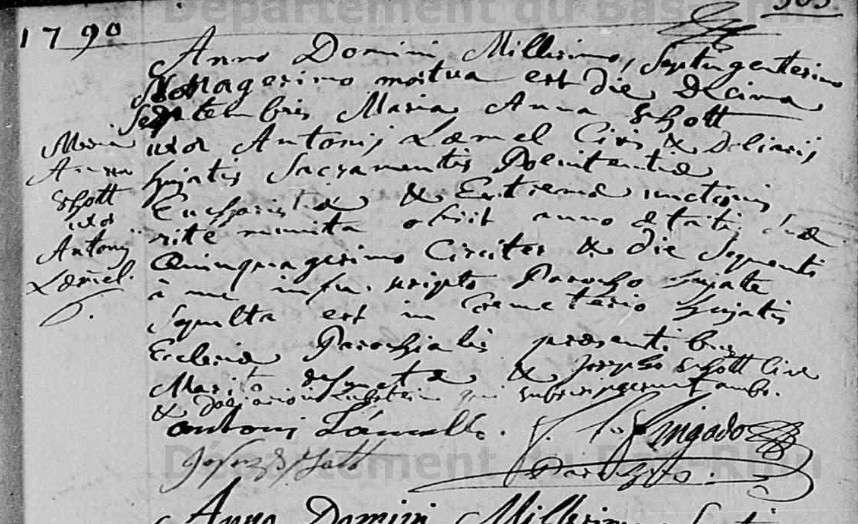 Departement du Bas-Rhin
1790
303
Anno Domini Millesimo, Septingentesimo
Nonagesimo mortua est die Decima
Septembris Maria Anna Schott
uxor Antonij Laemel Civis & Doliarij
hujatis Sacramentis Poenitentiae
Eucharistiae & Extremae unctionis
rite munita obiit anno aetatis suae
Quinquagesimo Circiter & die Sequenti
à me infra scripto Parocho hujate
Sepulta est in Coemeterio hujatis
Ecclesiae Parochialis praesentibus
Marito defunctae & Josepho Schott Cive
& qui subscripserunt ambo.
Maria
Anna
Schott
uxor
Antonij
Laemel.
antoni
Joseph Schott
Parochus.
Departement du Bas-Rhin
Anno Domini Millesimo